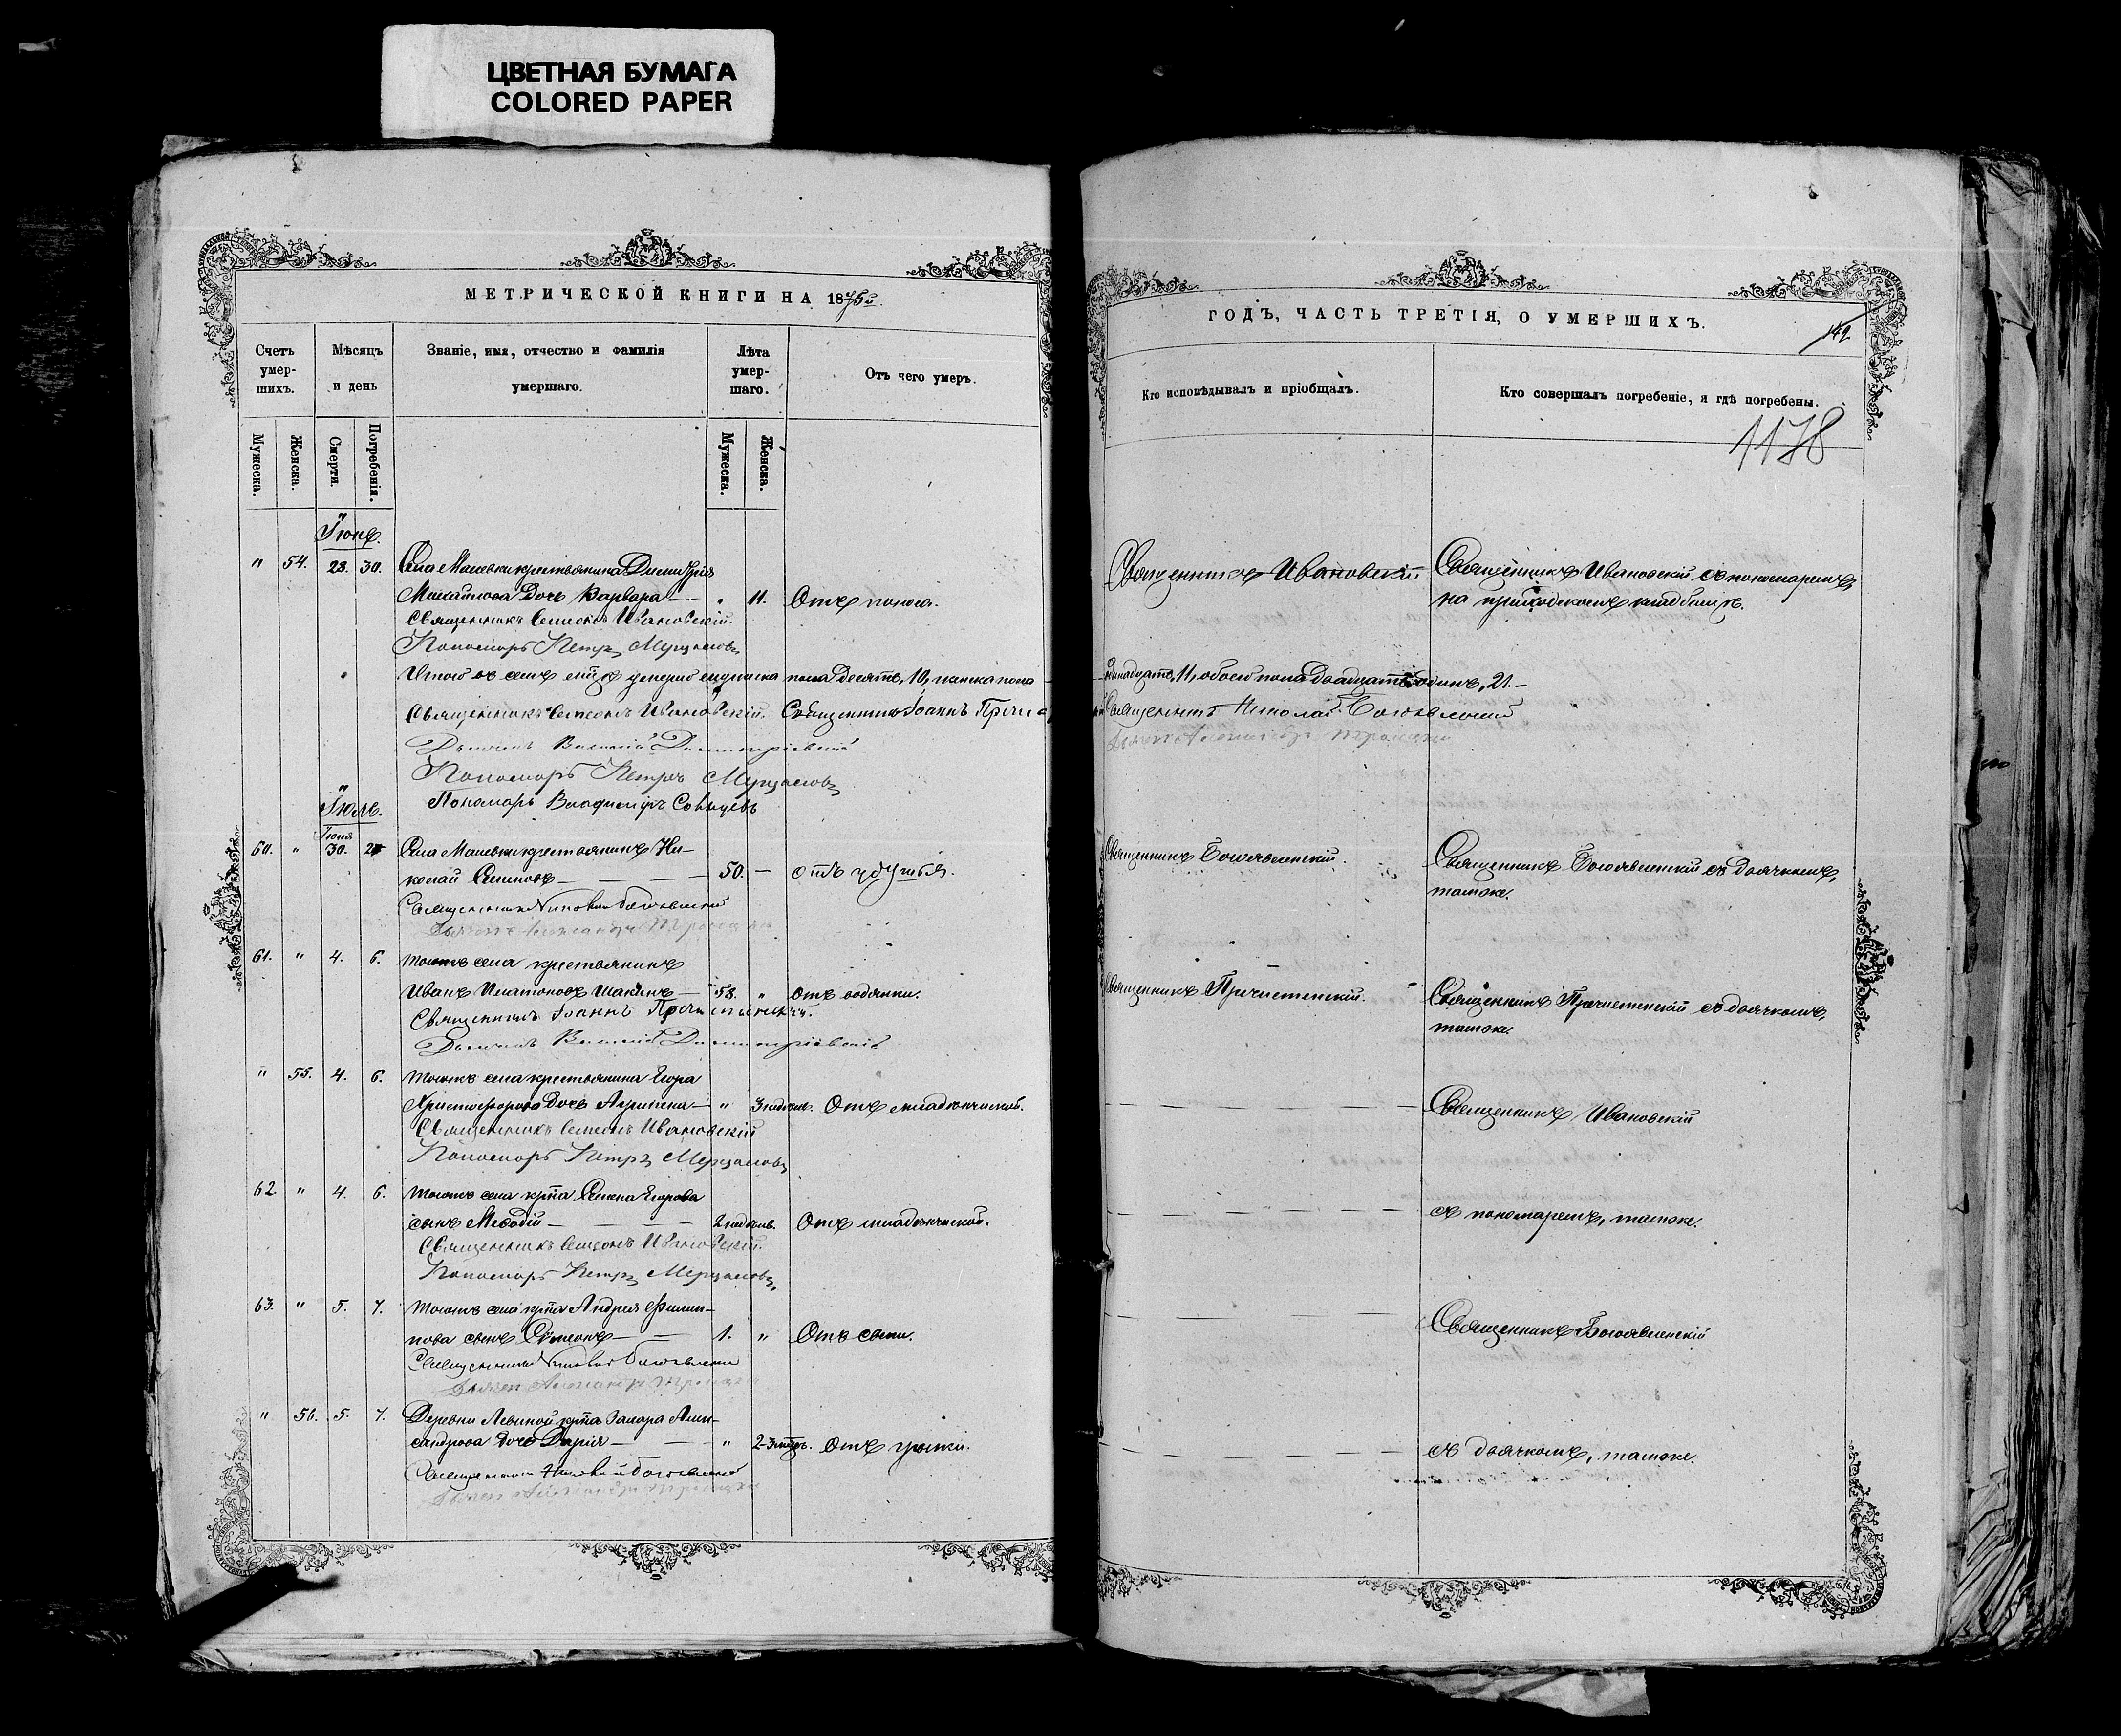 ЦВЕТНАЯ БУМАГА
COLORED PAPER
МЕТРИЧЕСКОЙ КНИГИ НА 1875й
Счетъ умер-шихъ.
Мѣсяцъ и день
Званіе, имя, отчество и фамилія умершаго.
Лѣта умер-шаго.
Отъ чего умеръ.
Мужеска.
Женска.
Смерти.
Погребенія.
Мужеска.
Женска.
Іюнь.
" 54. 28. 30. Села крестьянина Димитрія
Михайлова дочь Варвара " 11. Отъ поноса.
Священникъ Симеонъ Ивановскій.
Пономарь Петръ Мерцаловъ
Итого въ семъ мѣсяцѣ умерло мужеска пола десять, 10, женска пола
Священникъ Симеонъ Ивановскій. Священникъ Іоаннъ Пречи-
Дьячекъ Василій Димитріевскій
Пономарь Петръ Мерцаловъ
Пономарь Владиміръ Солнцевъ
Іюль.
Іюня
60. " 30. 2 Села крестьянинъ Ни-
колай Семеновъ 50. — отъ удушья.
Священникъ Николай Богоявленскій
61. " 4. 6. тогожъ села крестьянинъ
Иванъ Платоновъ Шакинъ 58. " отъ водянки.
Священникъ Іоаннъ Пречистенскій.
Дьячекъ Василій Димитріевскій
" 55. 4. 6. тогожъ села крестьянина Егора
Христофорова дочь Агрипена " 3 недѣль. Отъ младенческой.
Священникъ Симеонъ Ивановскій
Пономарь Петръ Мерцаловъ
62. " 4. 6. тогожъ села крта Семена Егорова
сынъ Меѳодій 2 недѣль. Отъ младенческой.
Священникъ Симеонъ Ивановскій.
Пономарь Петръ Мерцаловъ
63. " 5. 7. тогожъ села крта Андрея Филип-
пова сынъ Симеонъ 1. " Отъ сыпи.
Священникъ Николай Богоявленскій
" 56. 5. 7. Деревни крта Захара Алек-
сандрова дочь Дарія " Отъ грыжи.
Священникъ Николай Богоявленский
ГОДЪ, ЧАСТЬ ТРЕТІЯ, О УМЕРШИХЪ.
142
Кто исповѣдывалъ и пріобщалъ.
Кто совершалъ погребеніе, и гдѣ погребены.
1178
Священникъ Ивановскій
Священникъ Ивановскій съ пономаремъ,
на приходскомъ кладбищѣ.
одинадцать, 11, обоего пола двадцать одинъ, 21.
Священникъ Николай Богоявленский
Священникъ Богоявленскій.
Священникъ Богоявленскій съ дьячкомъ,
тамже.
Священникъ Пречистенскій.
Священникъ Пречистенскій съ дьячкомъ,
тамже.
Священникъ Ивановскій
съ пономаремъ, тамже.
Священникъ Богоявленскій
съ дьячкомъ, тамже.